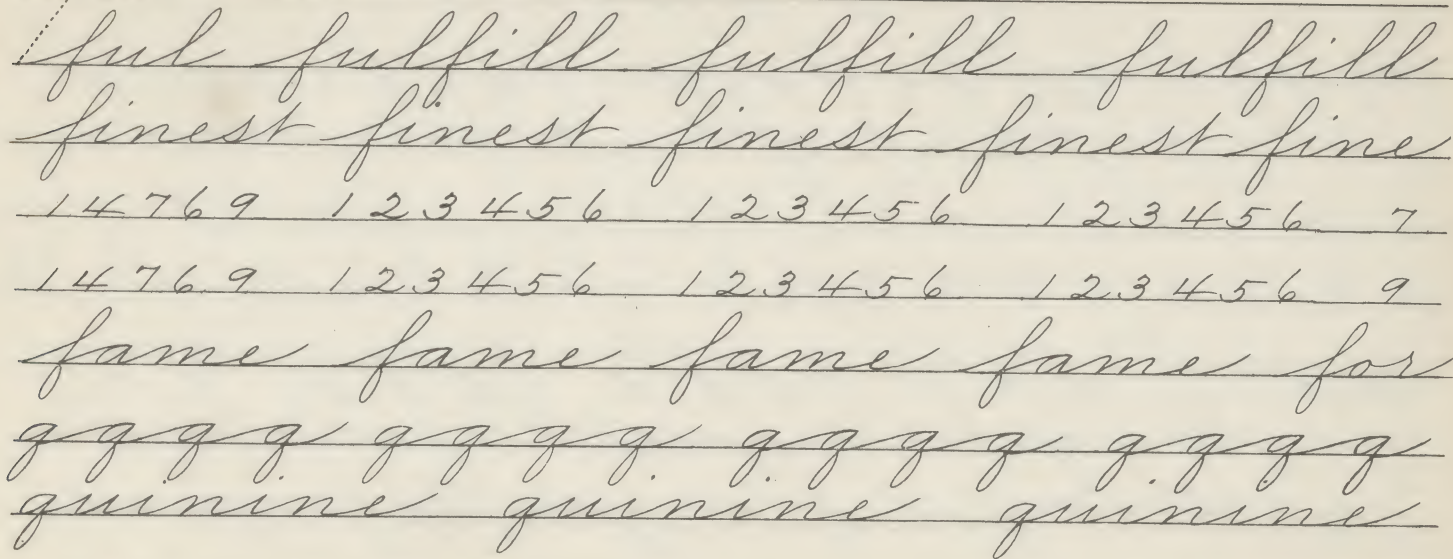 ful fulfill fulfill fulfill
finest finest finest finest fine
14769 123456 123456 123456 7
14769 123456 123456 123456 9
fame fame fame fame for
qqqq qqqq qqqq qqqq
quinine quinine quinine